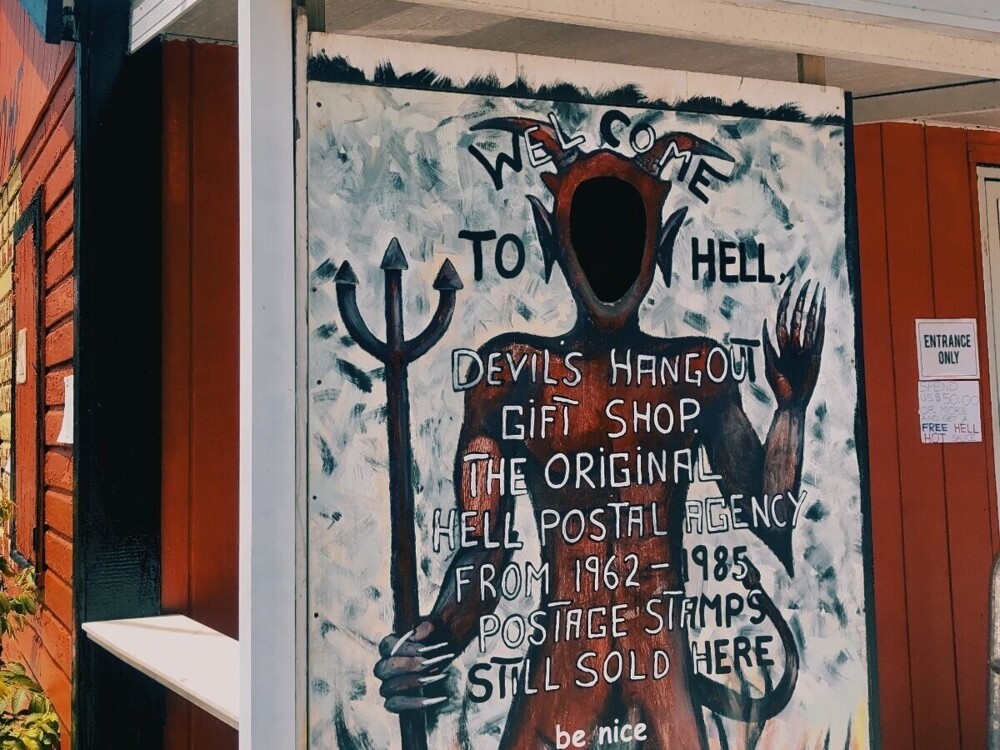 WELCOME
TO HELL,
DEVIL'S HANGOUT
GIFT SHOP.
THE ORIGINAL
HELL POSTAL AGENCY
FROM 1962 - 1985
POSTAGE STAMPS
STILL SOLD HERE
be nice
ENTRANCE
ONLY
SPEND
US$50.00
OR MORE
AND GET A
FREE HELL
HOT SAUCE